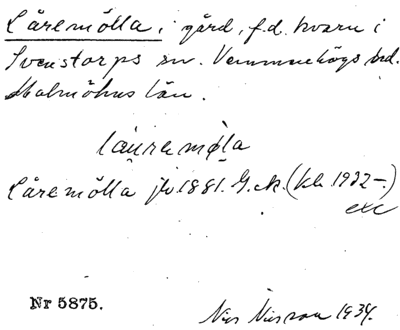 Låremölla, i gård, f.d. kvarn i
Svenstorps sn. Vemmenhögs hd.
Malmöhus län.
låuremøla
Låremölla jb 1881. G.k. (kb 1922-.)
exc
Nr 5875.
Nils Nilsson 1934.